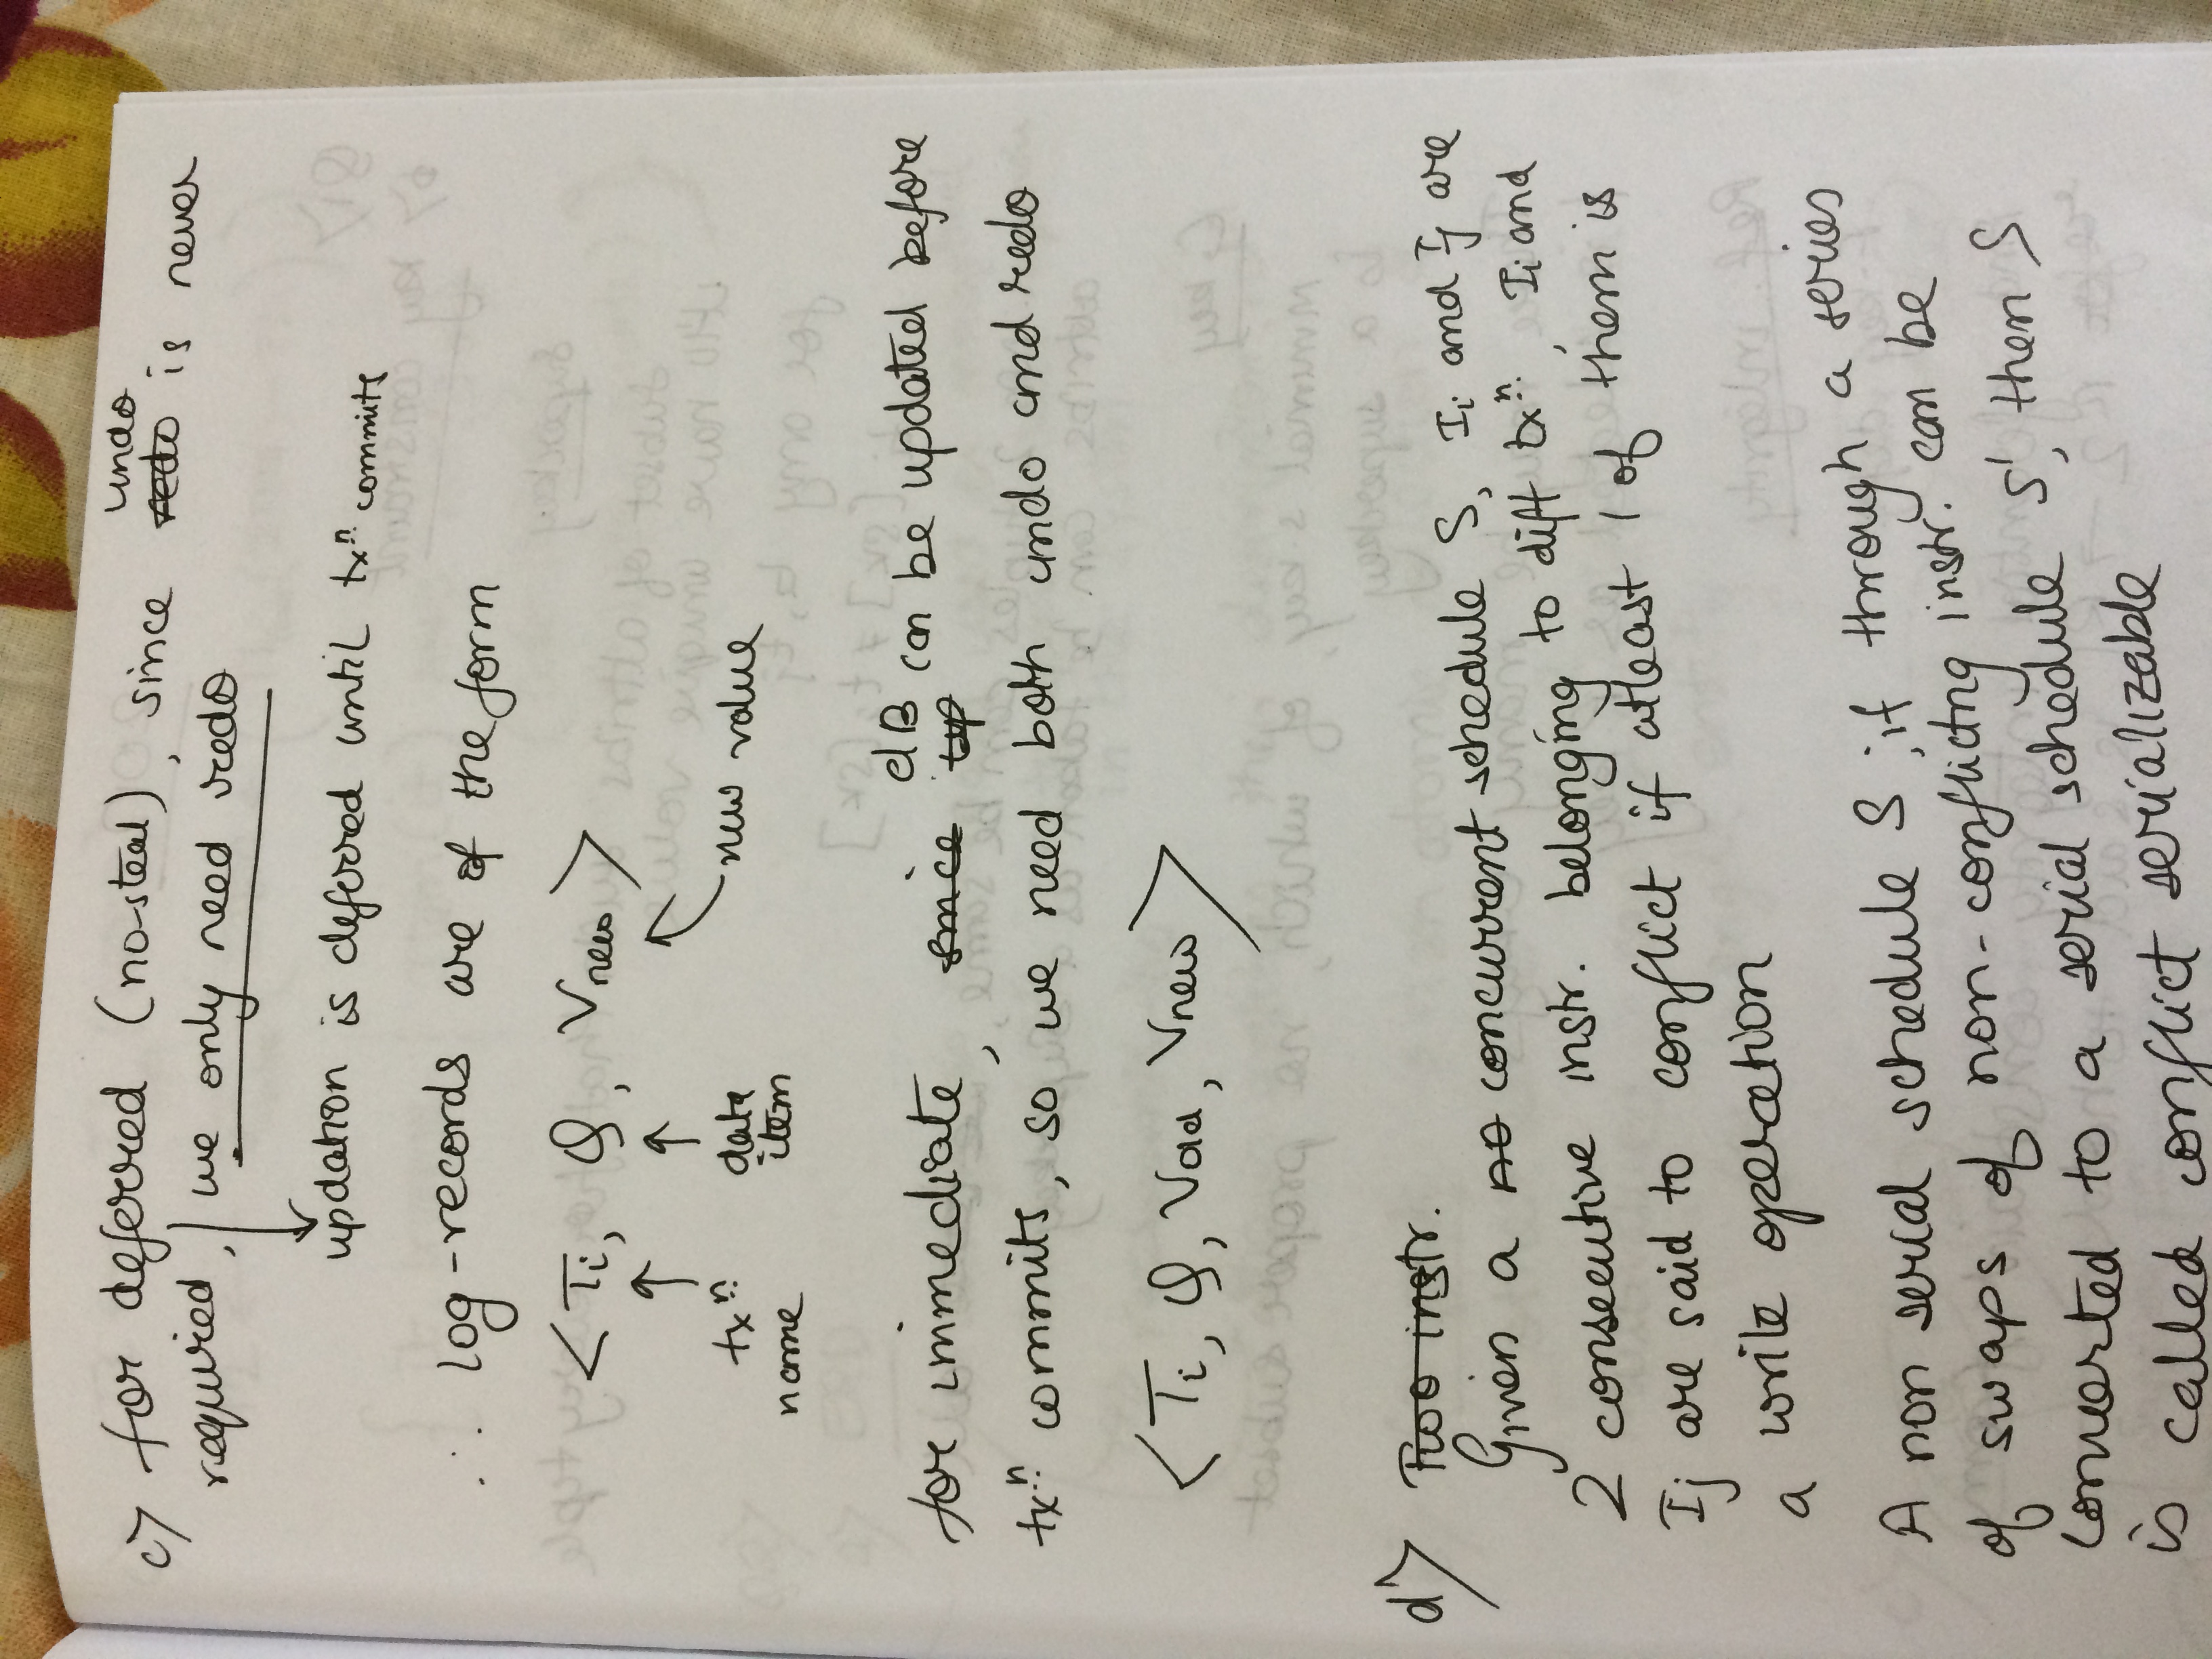 c) for deferred (no-steal), since undo is never
required, we only need redo
updation is deferred until txn commits
∴ log-records are of the form
<Ti, Q, Vnew>
txn name
data item
new value
for immediate, since dB can be updated before
txn commits, so we need both undo and redo
<Ti, Q, Vold, Vnew>
d) Two instr.
Given a no concurrent schedule S, Ii and Ij are
2 consecutive instr. belonging to diff txn, Ii and
Ij are said to conflict if atleast 1 of them is
a write operation
A non serial schedule S, if through a series
of swaps of non-conflictng instr. can be
converted to a serial schedule S', then S
is called conflict serializable